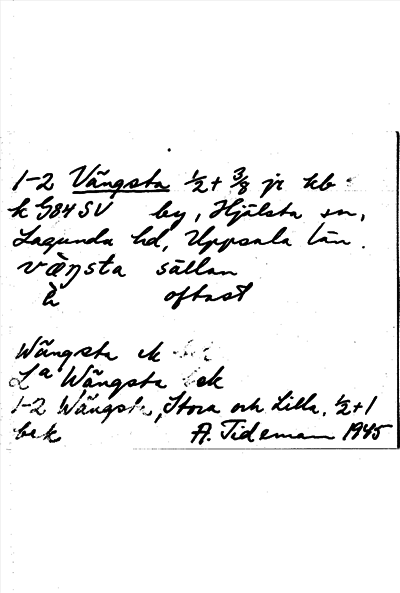 1-2 Vängsta ½ + ⅜ jr kb
k G84SV by, Hjälsta sn,
Lagunda hd, Uppsala län.
vä̀ŋsta sällan
è oftast
Wängsta ek
La Wängsta ek
1-2 Wängsta, Stora och Lilla, ½+1
bek A. Tideman 1945